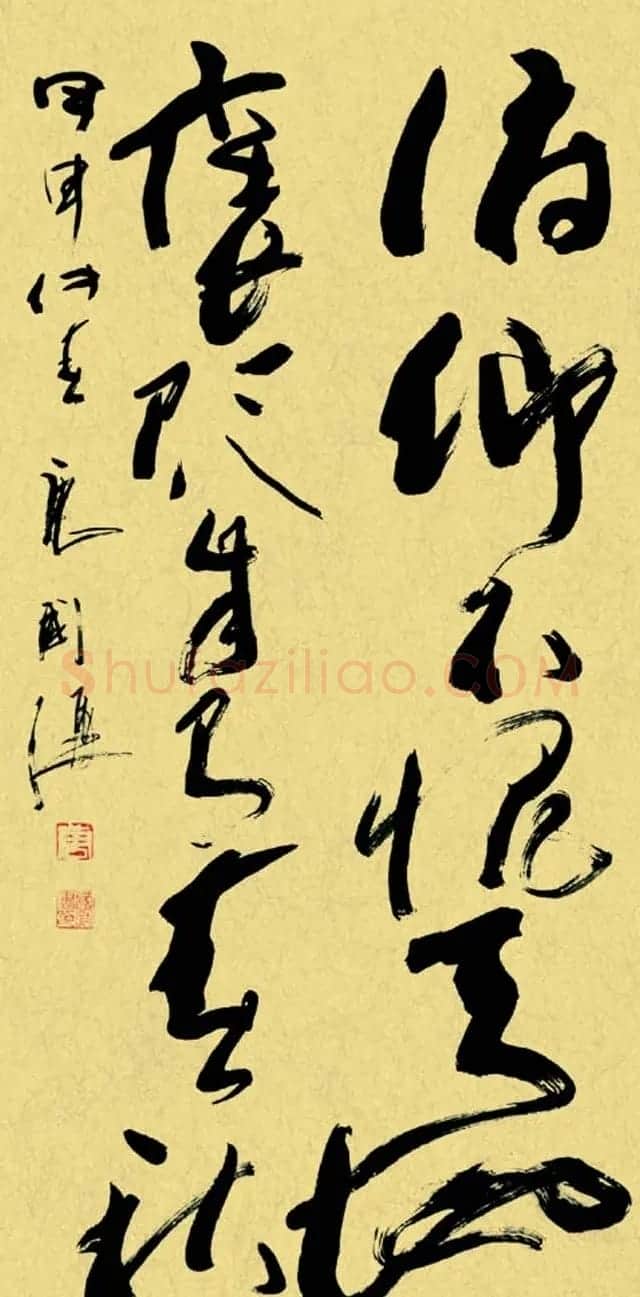 俯仰不愧天地
褒貶自有春秋
甲申仲春
Shufaziliao.COM